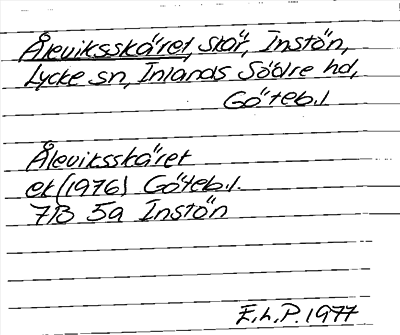 Åleviksskäret, skär, Instön,
Lycke sn, Inlands Södre hd,
Göteb.l.
Åleviksskäret
ek (1976) Göteb.l.
7B 5a Instön
E.L.P. 1977